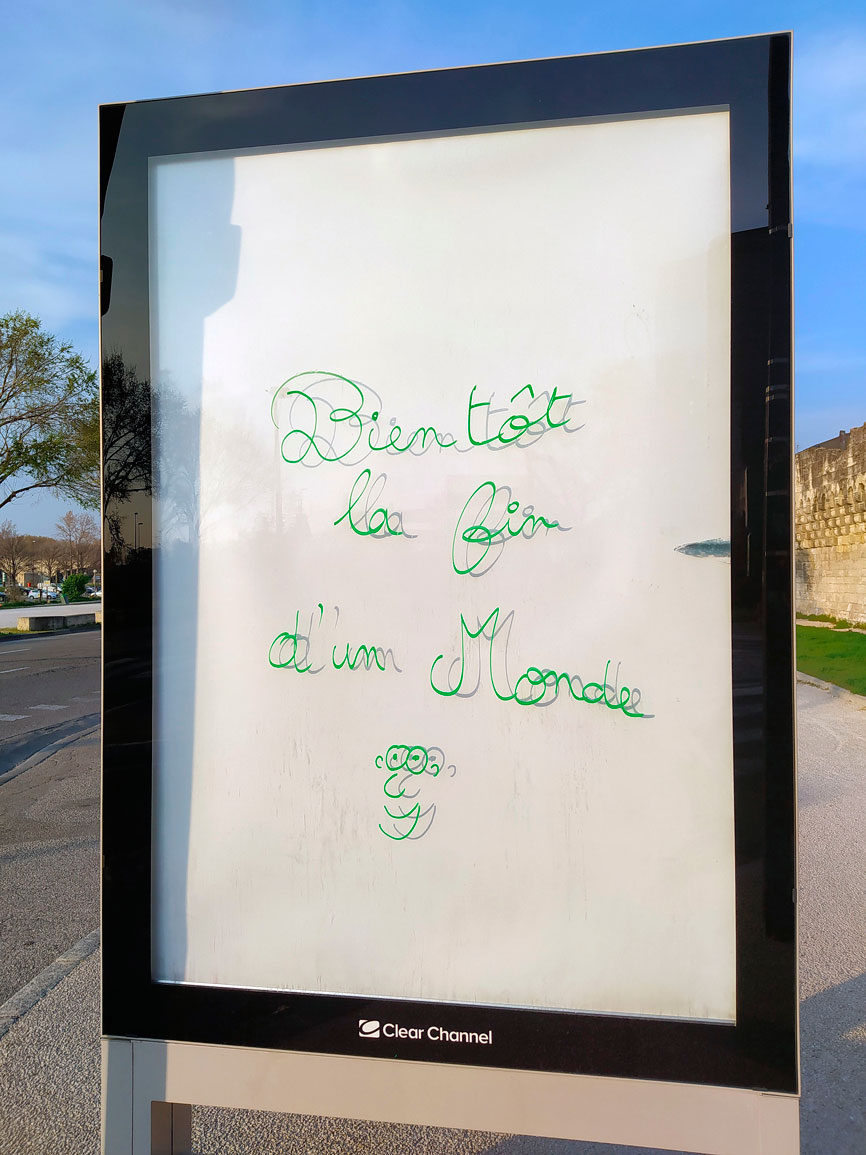 Bientôt
la fin
d'un Monde
Clear Channel